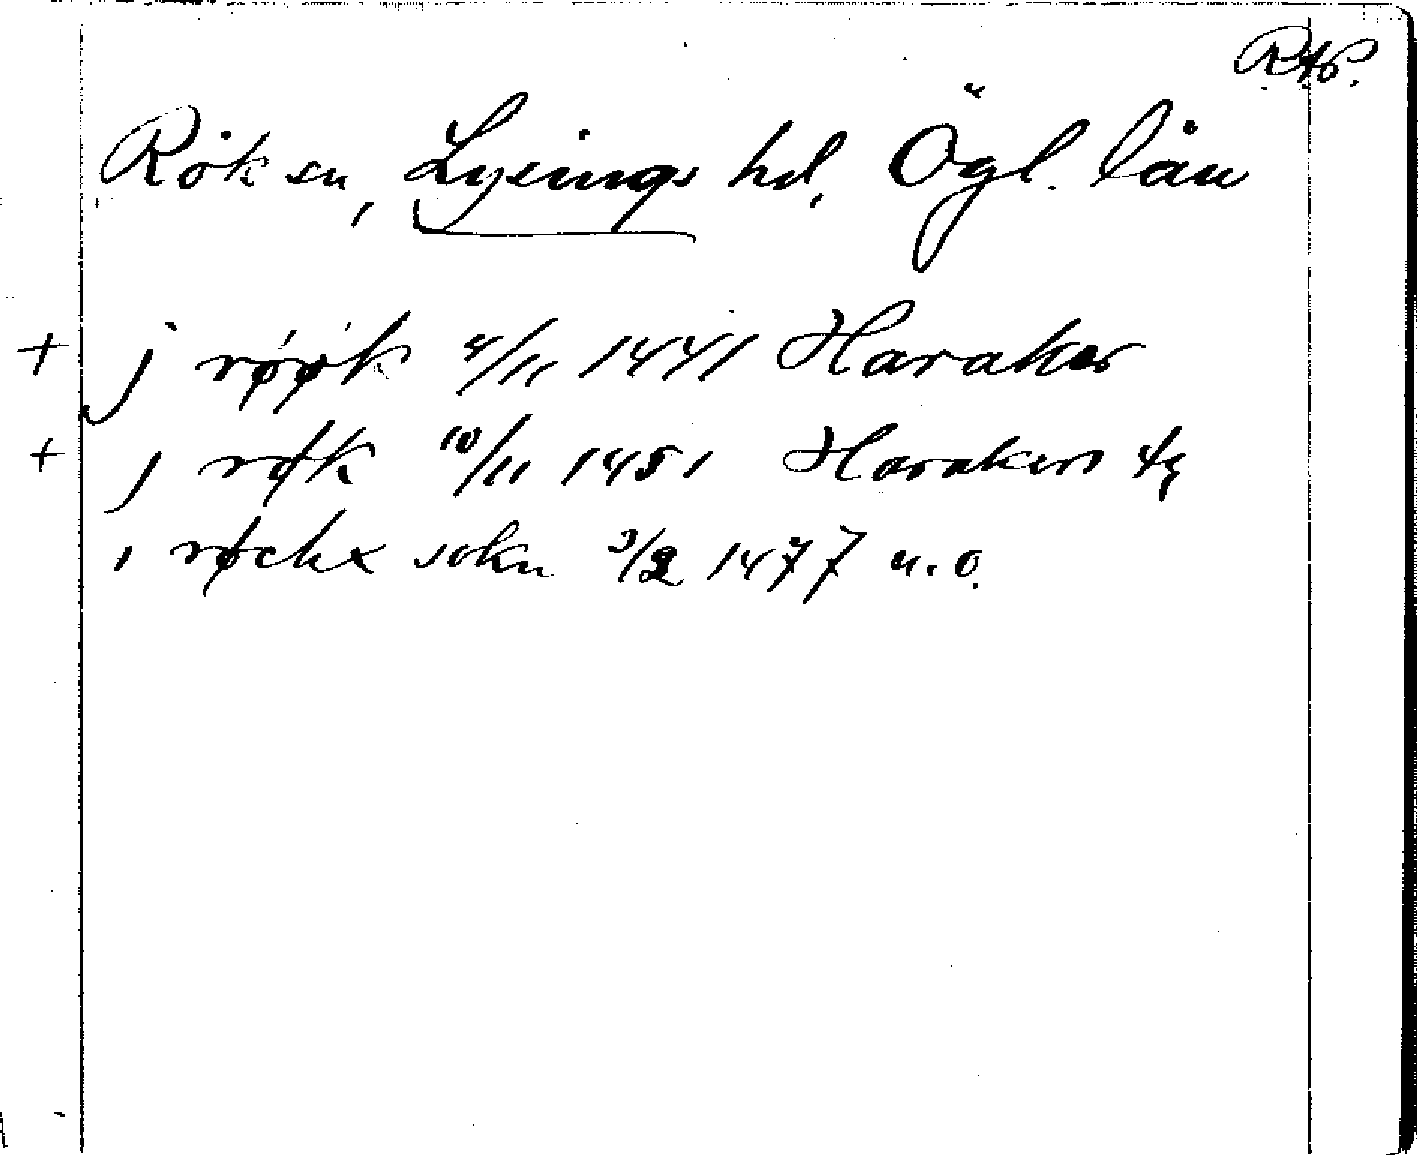 RAp.
Rök sn, Lysings hd, Ögl. län
+ j røøk 4/11 1441 Haraker
+ j røk 10/11 1451 Harakers
i røckx sokn 3/2 1477 u.o.